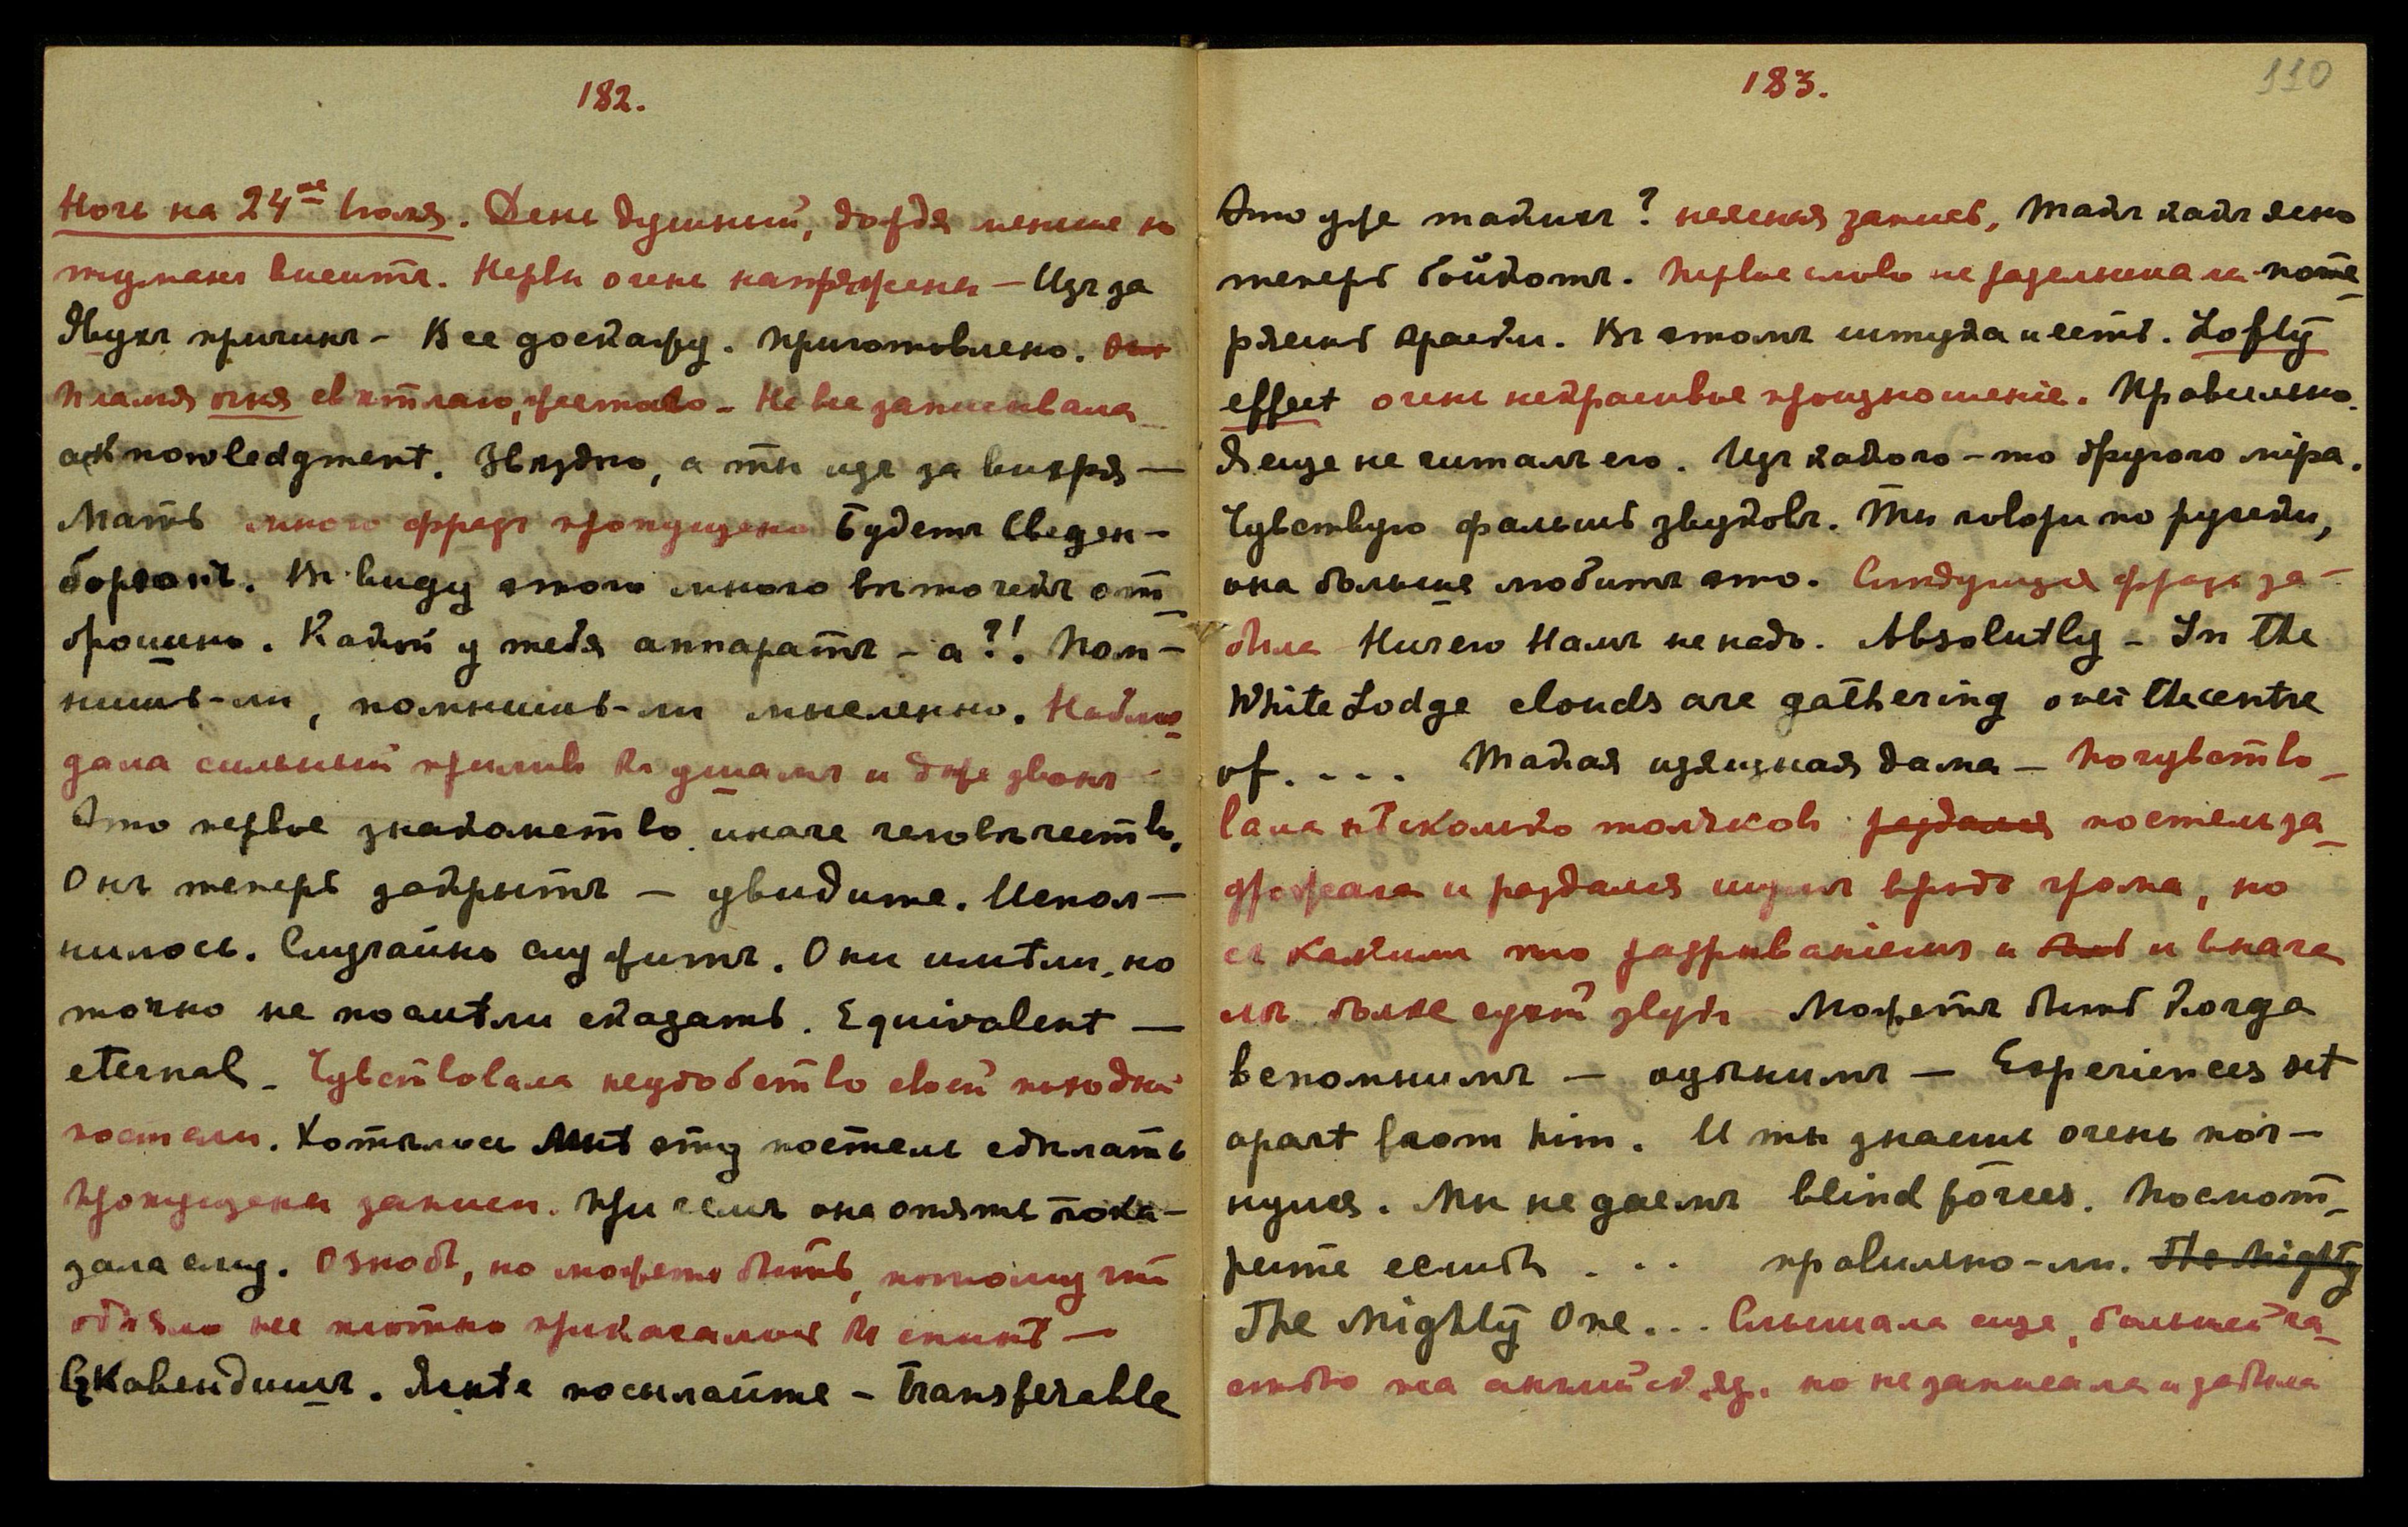 182.
Ночь на 24ое Іюля. День душный, дождя меньше но
туманъ виситъ. Нервы очень напряжены – Изъ за
двухъ причинъ – Все доскажу. Приготовлено.
Пламя огня свѣтлаго, желтаго – Не все записывала
acknowledgment. Звѣздно, а ты изъ за вихря –
Мать много фразъ пропущено Будетъ Сведен–
боргомъ. Въ виду этого много вѣточекъ от–
брошено. Какой у тебя аппаратъ – а?! Пом–
нишь-ли, помнишь-ли мысленно. Наблю–
дала сильный приливъ къ ушамъ и даже звонъ
Это первое знакомство иначе человѣчество.
Онъ теперь закрытъ – увидите. Испол–
нилось. Случайно служитъ. Они имѣли, но
точно не посмѣли сказать. Equivalent –
eternal – Чувствовала неудобство своей походной
постели. Хотѣлось Мнѣ эту постель сдѣлать
Пропущены записи. При чемъ она опять пока–
зала ему. Ознобъ, но можетъ быть, потому что
одѣяло не плотно прикасалось къ спинѣ –
Кавендишъ. посылайте – transferable
183.
110
Это уже такихъ? неясная запись, такъ какъ ясно
теперь бойкотъ. Первое слово не разслышала – поте–
ряешь краски. Въ этомъ штука и есть. Lofty
effect очень некрасивое произношеніе. Правильно.
Я еще не читалъ его. Изъ какого-то другого міра.
Чувствую фальшь звуковъ. Ты говори по русски,
она больше любитъ это. Слѣдующая фраза за–
была Ничего Намъ не надо. Absolutly – In the
White Lodge clouds are gathering over the centre
of. . . . Такая изящная дама – Почувство–
вала нѣсколько толчковъ раздался постель за–
дрожала и раздался шумъ вродѣ грома, но
съ какимъ то раздриваніемъ и и внача
лѣ болѣе сухой звукъ Можетъ быть когда
вспомнимъ – оцѣнимъ – Experiences set
apart from him. И ты знаешь очень кос–
нулся. Мы не даемъ blind forces. Посмот–
рите еслибъ . . . правильно-ли. The Mighty
The Mighty One... Слышала еще, большей ча–
стью на английск. яз. но не записала и забыла